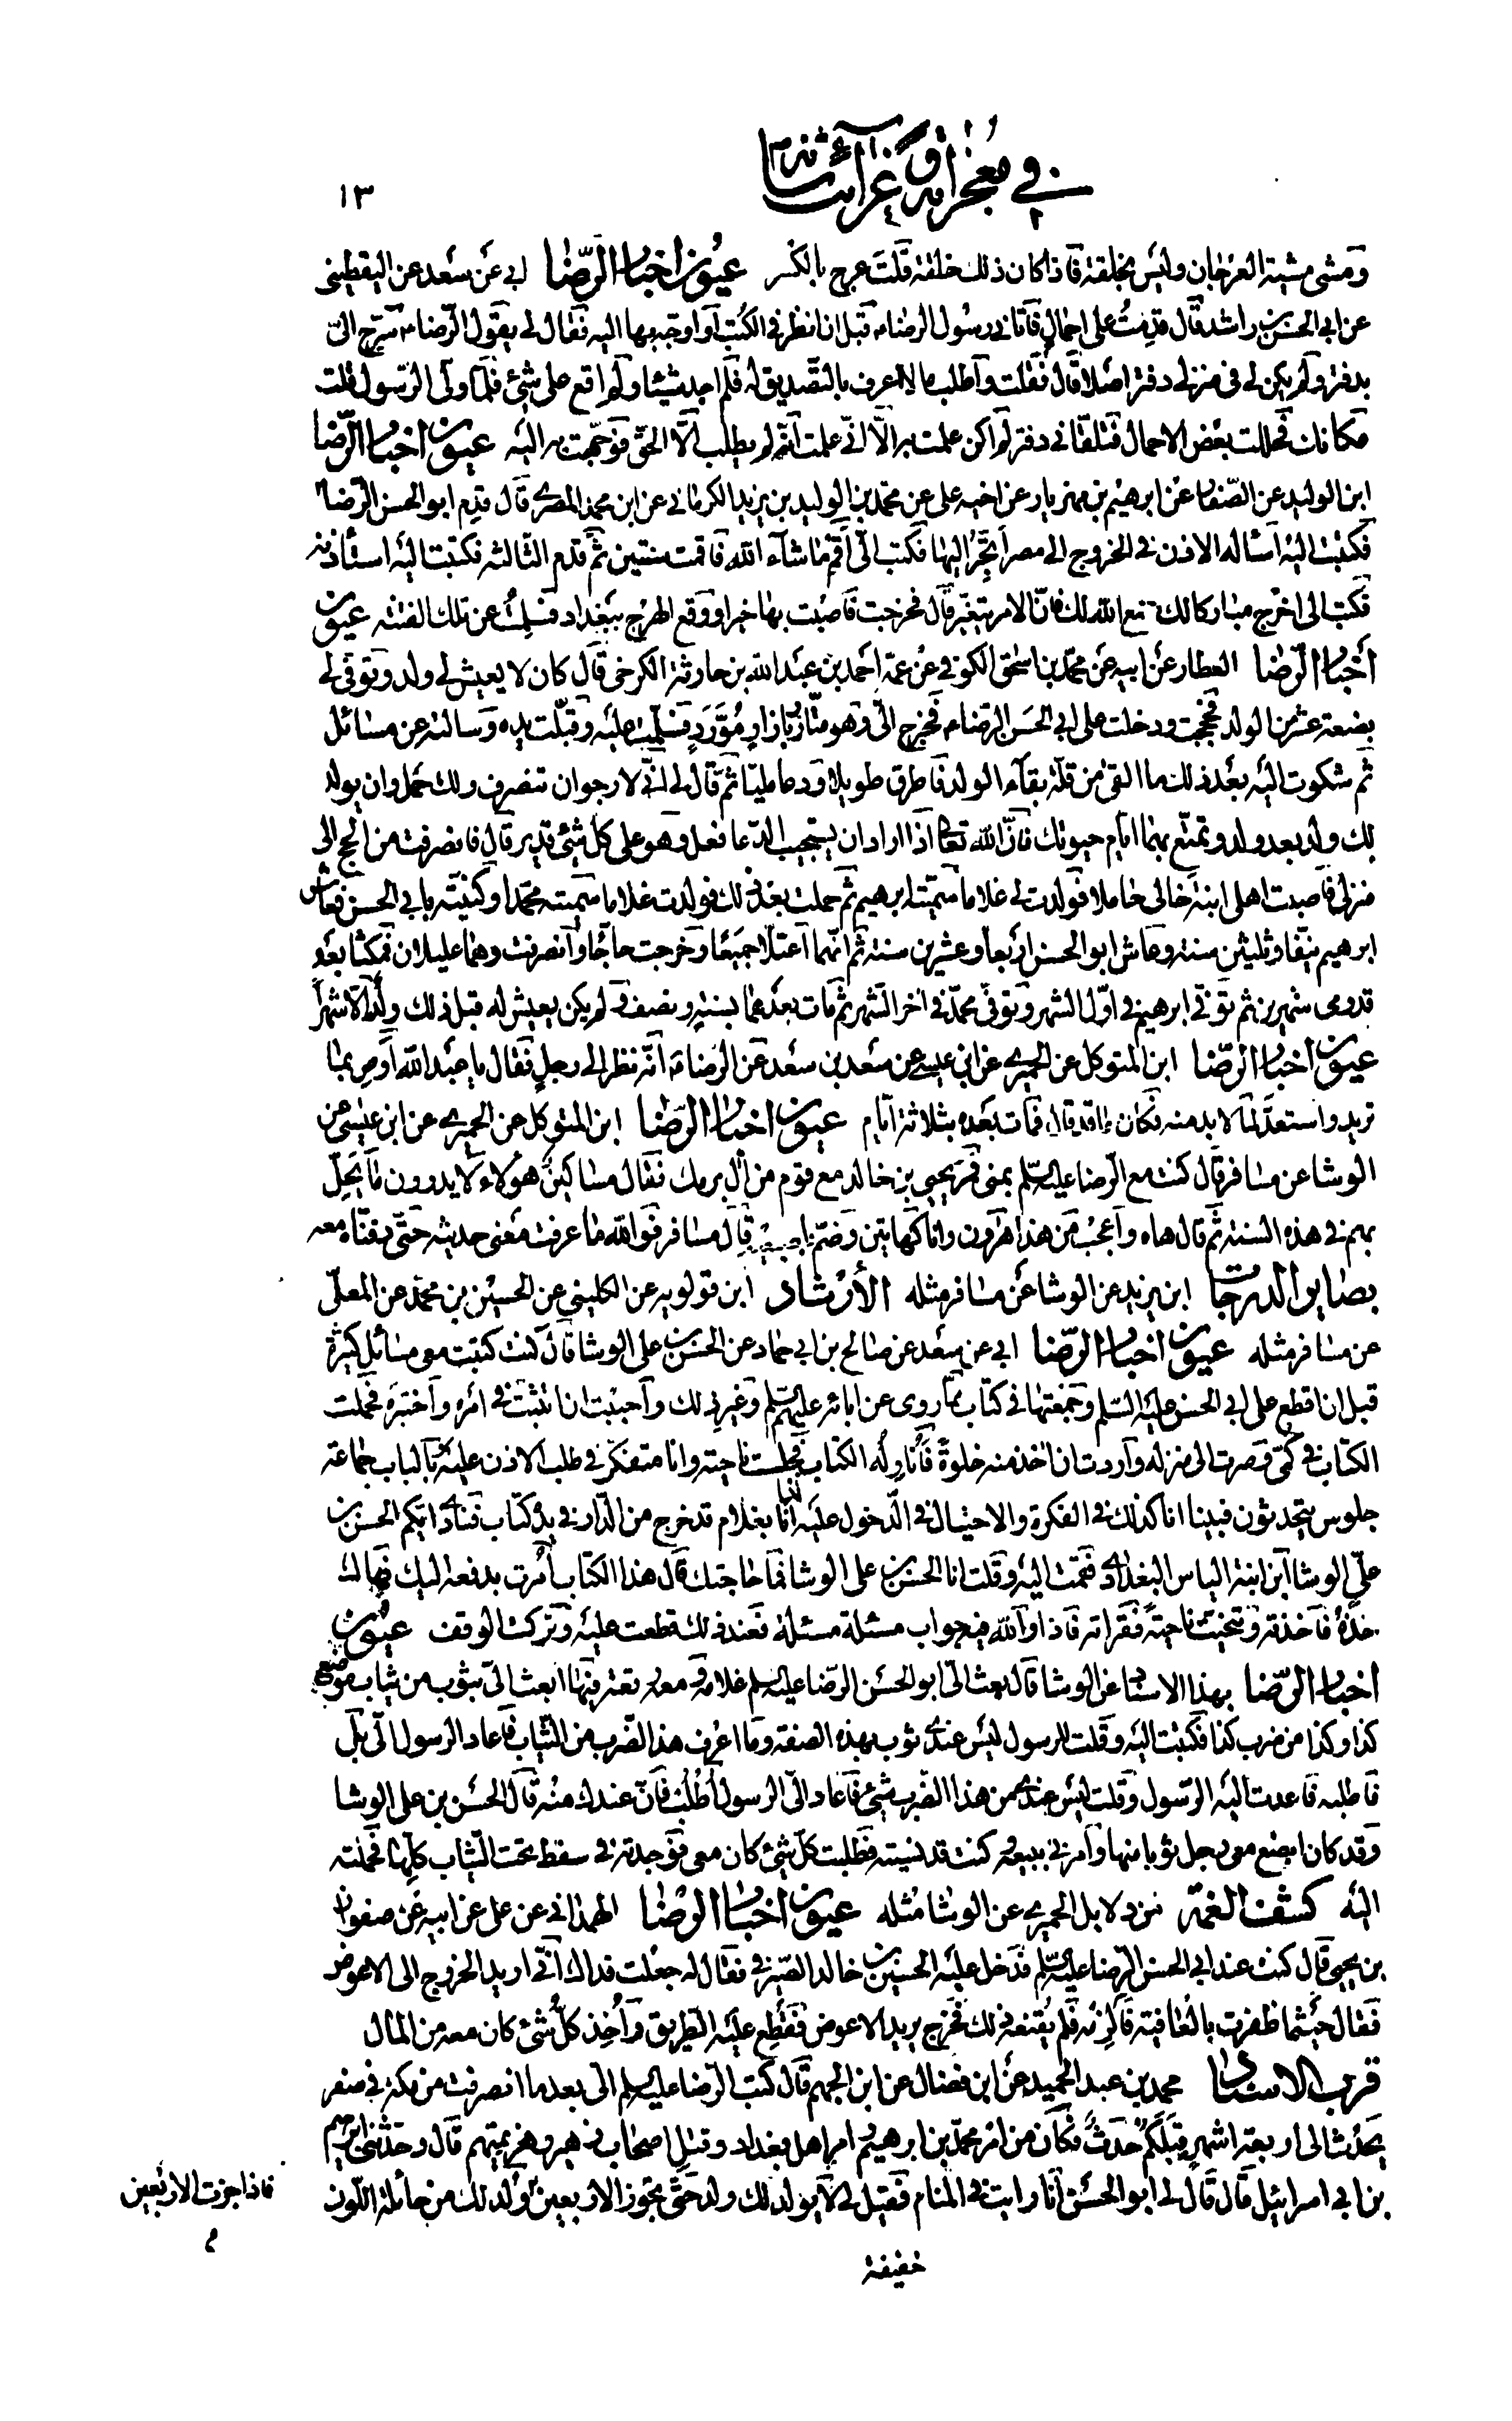 في معجزاته وغرائب شأنه
١٣
ومشى مشية العرجان وليس بخلقة فاذا كان ذلك خلقة قلت عرج بالكسر عيون اخبار الرضا ابي عن سعد عن اليقطيني
عن ابي الحسن بن راشد قال قدمت على احمال فاتاني رسول الرضا ع قبل ان انظر في الكتب او اوجه بها اليه فقال لي يقول الرضا ع سرح الي
بدفتر ولم يكن لي في منزلي دفتر اصلا قال فقلت واطلب ما لا اعرف بالتصديق له فلم اجد شيئا ولم اقع على شيء فلما ولى الرسول قلت
مكانك فحللت بعض الاحمال فتلقاني دفتر لم اكن علمت به الا اني علمت انه لم يطلب الا الحق فوجهت به اليه عيون اخبار الرضا
ابن الوليد عن الصفار عن ابرهيم بن مهزيار عن اخيه علي عن محمد بن الوليد بن يزيد الكرماني عن ابن محمد المصري قال قدم ابو الحسن الرضا ع
فكتبت اليه اساله الاذن في الخروج الى مصر اتجر اليها فكتب الي اقم ما شاء الله فاقمت سنتين ثم قدم الثالثة فكتبت اليه استأذنه
فكتب الي اخرج مباركا لك صنع الله لك فان الامر يتغير قال فخرجت فاصبت بها خيرا ووقع الهرج ببغداد فسلمت عن تلك الفتنه عيون
اخبار الرضا العطار عن ابيه عن محمد بن اسحق الكوفي عن عمه احمد بن عبد الله بن حارثة الكرخي قال كان لا يعيش لي ولد وتوفي لي
بضعة عشر من الولد فحججت ودخلت على ابي الحسن الرضا ع فخرج الي وهو متازر بازار مورد فسلمت عليه وقبلت يده وسالته عن مسائل
ثم شكوت اليه بعد ذلك ما القى من قلة بقاء الولد فاطرق طويلا ودعا مليا ثم قال لي اني لارجو ان تنصرف ولك حمل وان يولد
لك ولد بعد ولد وتمتع بهما ايام حيوتك فان الله تعالى اذا اراد ان يستجيب الدعا فعل وهو على كل شيء قدير قال فانصرفت من الحج الى
منزلي فاصبت اهلي ابنة خالي حاملا فولدت لي غلاما سميته ابرهيم ثم حملت بعد ذلك فولدت غلاما سميته محمدا وكنيته بابي الحسن فعاش
ابرهيم نيفا وثلثين سنة وعاش ابو الحسن اربعا وعشرين سنة ثم انهما اعتلا جميعا وخرجت حاجا وانصرفت وهما عليلان فمكثا بعد
قدومي شهرين ثم توفي ابرهيم في اول الشهر وتوفي محمد في اخر الشهر ثم مات بعدهما بسنة ونصف ولم يكن يعيش له قبل ذلك ولد الا شهرا
عيون اخبار الرضا ابن المتوكل عن الحميري عن ابن عيسى عن سعد بن سعد عن الرضا ع انه نظر الى رجل فقال يا عبد الله اوص بما
تريد واستعد لما لا بد منه فكان ما قد قال فمات بعده بثلاثة ايام عيون اخبار الرضا ابن المتوكل عن الحميري عن ابن عيسى عن
الوشا عن مسافر قال كنت مع الرضا عليه السلم بمنى فمر يحيى بن خالد مع قوم من ال برمك فقال مساكين هؤلاء لا يدرون ما يحل
بهم في هذه السنة ثم قال هاه واعجب من هذا هرون وانا كهاتين وضم باصبعيه قال مسافر فوالله ما عرفت معنى حديثه حتى دفناه معه
بصاير الدرجات ابن يزيد عن الوشا عن مسافر مثله الارشاد ابن قولويه عن الكليني عن الحسين بن محمد عن المعلى
عن مسافر مثله عيون اخبار الرضا ابي عن سعد عن صالح بن ابي حماد عن الحسن بن علي الوشا قال كنت كتبت معي مسائل كثيرة
قبل ان اقطع على ابي الحسن عليه السلم وجمعتها في كتاب مما روى عن ابائه عليهم السلم وغير ذلك واحببت ان اتثبت في امره واختبره فحملت
الكتاب في كمي وصرت الى منزله واردت ان اخذ منه خلوة فاناوله الكتاب فجلست ناحية وانا متفكر في طلب الاذن عليه وبالباب جماعة
جلوس يتحدثون فبينا انا كذلك في الفكرة والاحتيال في الدخول عليه اذ انا بغلام قد خرج من الدار في يده كتاب فنادى ايكم الحسن بن
علي الوشا ابن ابنة الياس البغدادي فقمت اليه وقلت انا الحسن بن علي الوشا فما حاجتك قال هذا الكتاب امرت بدفعه اليك فهاك
خذه فاخذته وتنحيت ناحية فقراته فاذا والله فيه جواب مسئلة مسئلة فعند ذلك قطعت عليه وتركت الوقف عيون
اخبار الرضا بهذا الاسناد عن الوشا قال بعث الي ابو الحسن الرضا عليه السلم غلامه ومعه رقعة فيها ابعث الي بثوب من ثياب موضع
كذا وكذا من ضرب كذا فكتبت اليه وقلت للرسول ليس عندي ثوب بهذه الصفة وما اعرف هذا الضرب من الثياب فاعاد الرسول الي بل
فاطلبه فاعدت اليه الرسول وقلت ليس عندي من هذا الضرب شيء فاعاد الي الرسول اطلب فان عندك منه قال الحسن بن علي الوشا
وقد كان ابضع معي رجل ثوبا منها وامرني ببيعه وكنت قد نسيته فطلبت كل شيء كان معي فوجدته في سفط تحت الثياب كلها فحملته
اليه كشف الغمة من دلايل الحميري عن الوشا مثله عيون اخبار الرضا الهمذاني عن علي عن ابيه عن صفوان
بن يحيى قال كنت عند ابي الحسن الرضا عليه السلم فدخل عليه الحسين بن خالد الصيرفي فقال له جعلت فداك اني اريد الخروج الى الاعوض
فقال حيثما ظفرت بالعافية فالزمه فلم يقنعه ذلك فخرج يريد الاعوض فقطع عليه الطريق واخذ كل شيء كان معه من المال
قرب الاسناد محمد بن عبد الحميد عن ابن فضال عن ابن الجهم قال كتب الرضا عليه السلم الي بعد ما انصرفت من مكة في صفر
يحدث الى اربعة اشهر قبلكم حدث فكان من امر محمد بن ابرهيم وامر اهل بغداد وقتل اصحاب زهير وهزيمتهم قال وحدثني ابرهيم
بن ابي اسرائيل قال قال لي ابو الحسن انا رايت في المنام فقيل لي لا يولد لك ولد حتى تجوز الاربعين ولد لك من حائلة اللون
فاذا جزت الاربعين
م
خفيفة